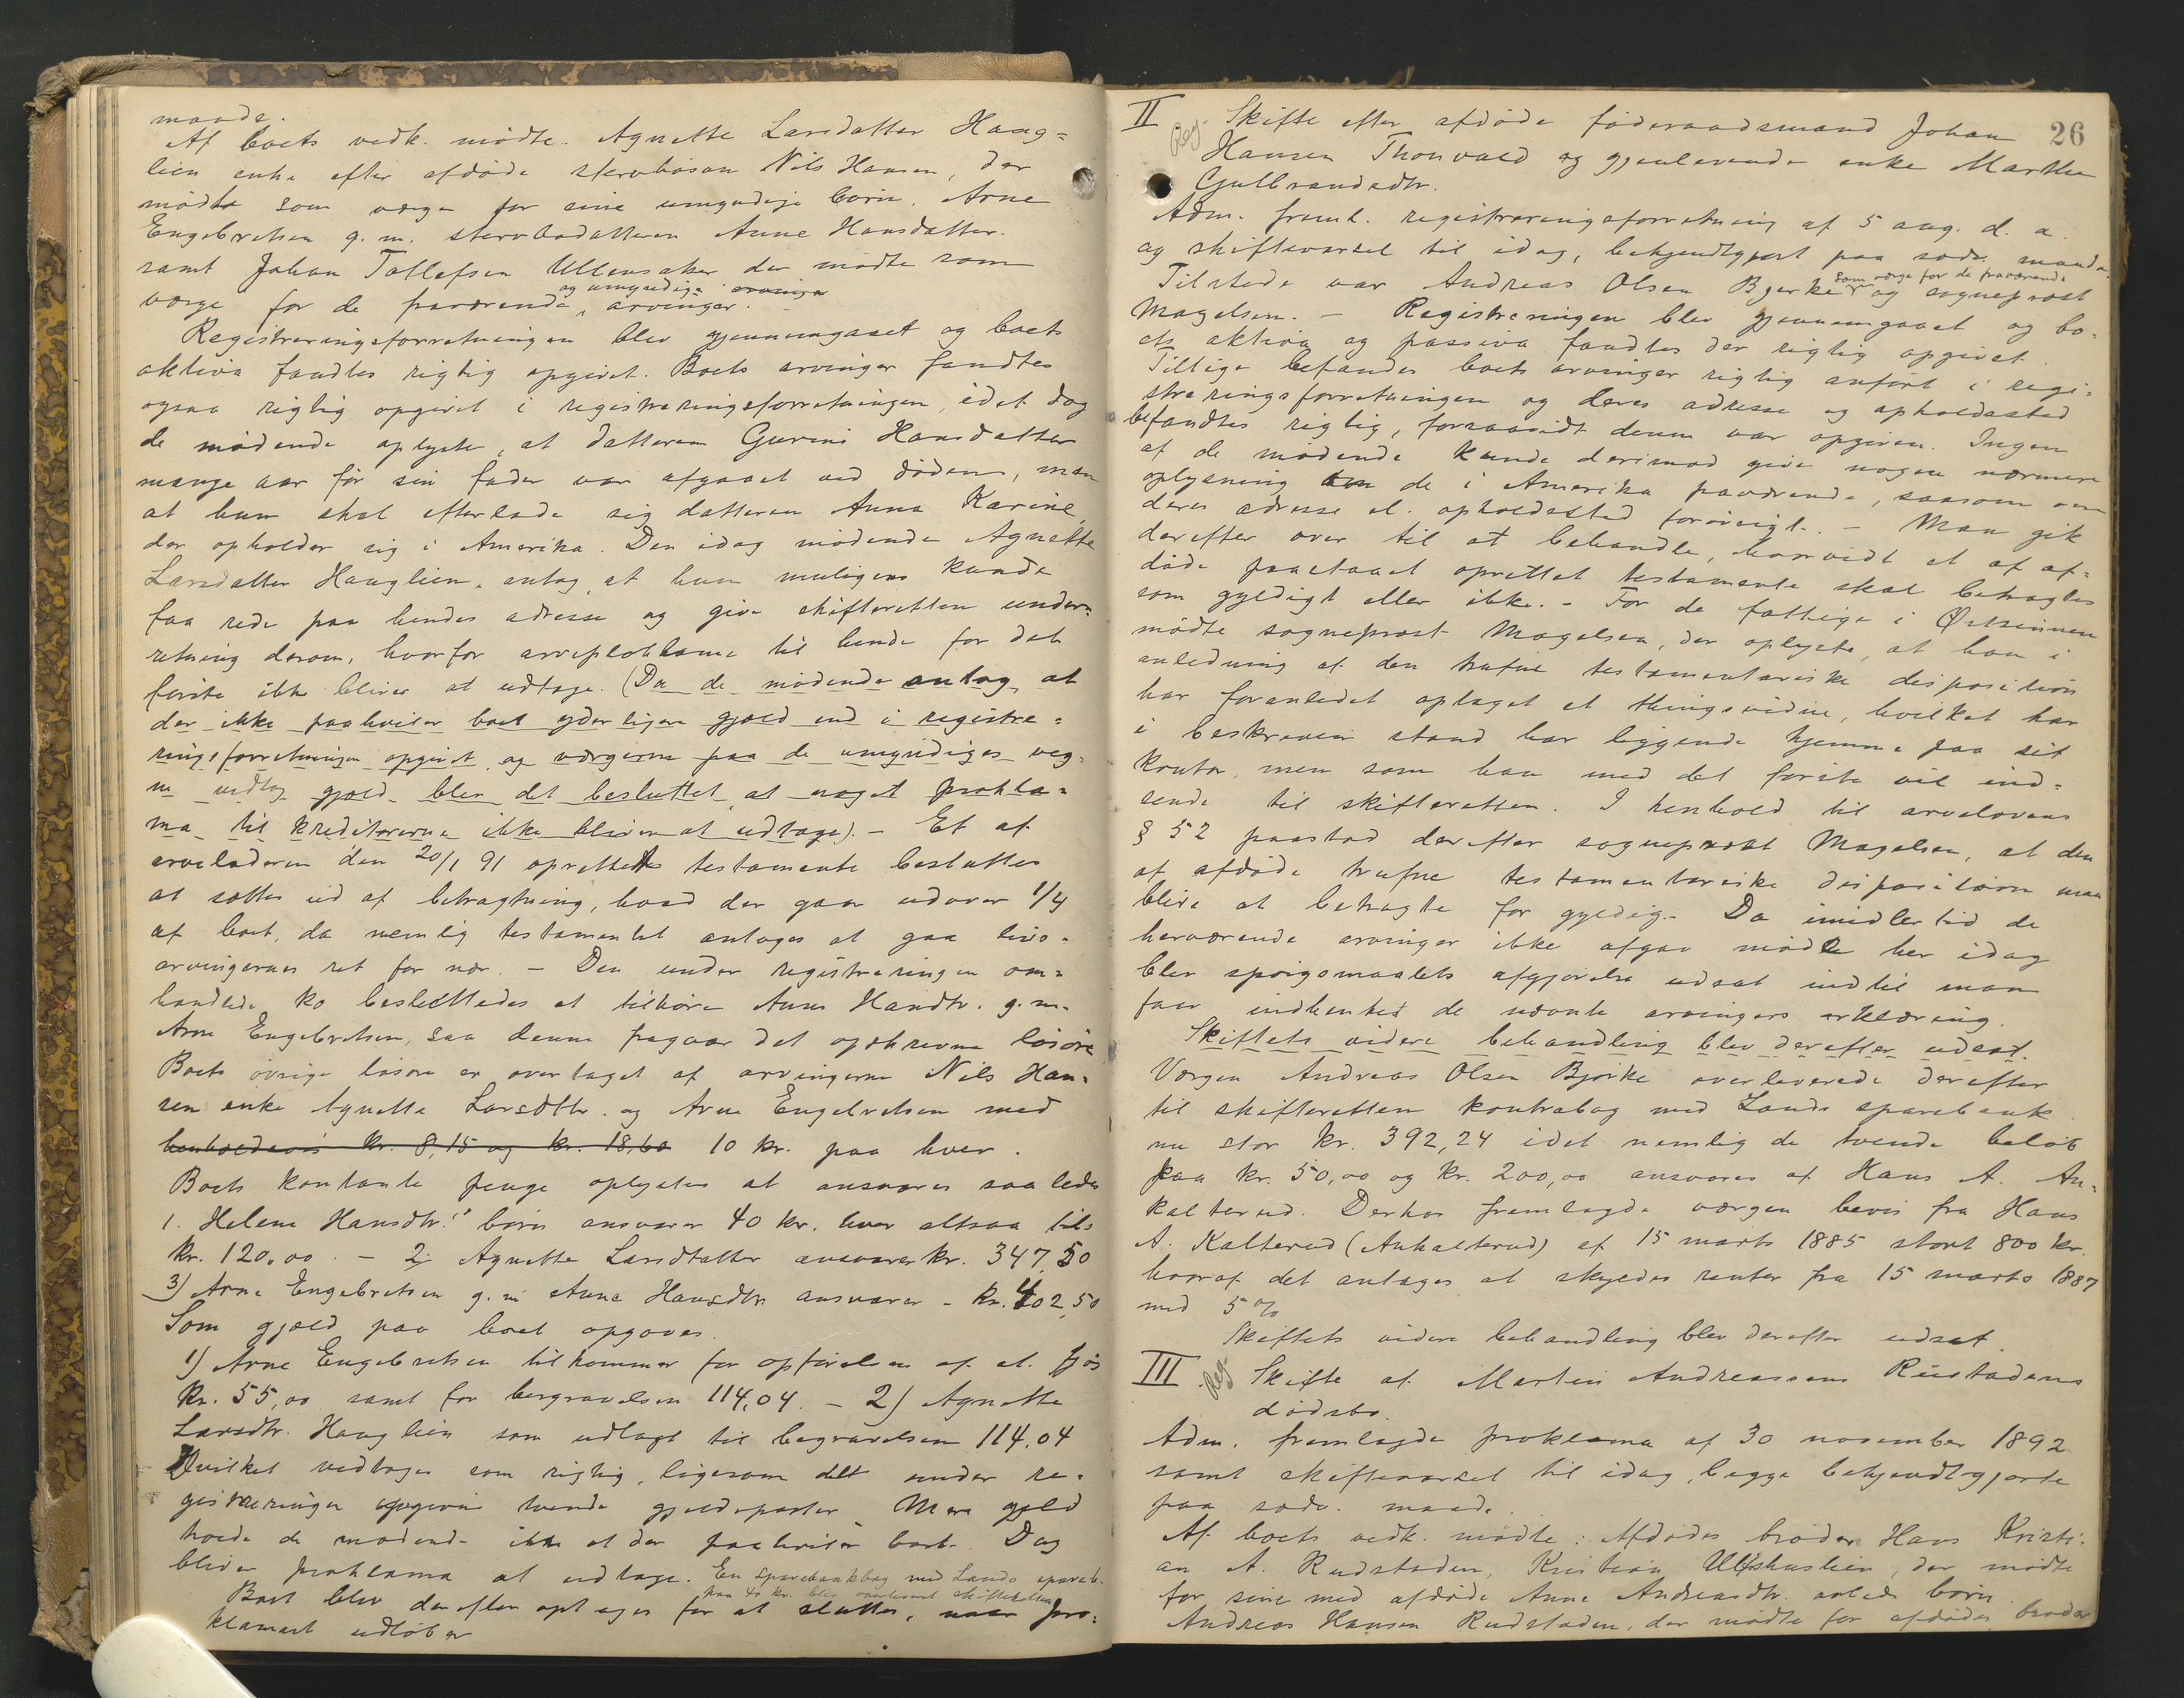 maade.
Af boets vedk. mødte. Agnette Larsdatter Haug=
lien enke efter afdøde stervbosøn Nils Hansen, der
mødte som værge for sine umyndige børn. Arne
Engebretsen g. m. stervbodatteren Anne Hansdatter.
samt Johan Tollefsen Ullensaker der mødte som
og umyndige arvinger
værge for de fraværende, arvinger.
Registreringsforretningen blev gjennemgaaet og boets
aktiva fandtes rigtig opgivet. Boets arvinger fandtes
ogsaa rigtig opgivet i registreringsforretningen, idet dog
de mødende oplyste, at datteren Gurine Hansdatter
mange aar før sin fader var afgaaet ved døden, men
at hun skal efterlade sig datteren Anna Karine,
der opholder sig i Amerika. Den idag mødende Agnette
Larsdatter Hauglien, antog, at hun muligens kunde
faa rede paa hendes adresse og give skifteretten under=
retning derom, hvorfor arveproklama til hende for det
første ikke bliver at udtage. (Da de mødende antog, at
der ikke paahviler boet yderligere gjæld end i registre=
ringsforretningen opgivet, og værgerne paa de umyndiges veg=
ne vedtog gjæld, blev det besluttet, at noget prokla=
ma til kreditorerne ikke bliver at udtage). - Et af
arveladeren den 20/1 91 oprettet testamente besluttes
at sættes ud af betragtning, hvad der gaar udover 1/4
af boet, da nemlig testamentet antages at gaa livs=
arvingernes ret for nær. - Den under registreringen om=
handlede ko besluttedes at tilhøre Anne Hansdtr. g. m.
Arne Engebretsen, saa denne fragaar det opskrevne løsøre
Boets øvrige løsøre er overtaget af arvingerne Nils Han=
sen enke Agnette Larsdtr. og Arne Engebretsen med
henholdsvis kr. 8,15 og kr. 18,60 10 kr. paa hver.
Boets kontante penge oplystes at ansvares saaledes
1. Helene Hansdtr.s børn ansvarer 40 kr. hver altsaa tils
kr. 120.00 - 2. Agnette Larsdatter ansvarer kr. 347,50
3) Arne Engebretsen g. m. Anne Hansdtr. ansvarer - kr. 402,50
Som gjæld paa boet opgaves.
1) Arne Engebretsen tilkommer for opførelsen af et fjøs
kr. 55,00 samt for begravelsen 114,04. - 2) Agnette
Larsdtr. Hauglien som udlagt til begravelsen 114.04
Hvilket vedtoges som rigtig, ligesom det under re=
gistreringen opgivne tvende gjældsposter. Mere gjæld
troede de mødende ikke at der paahviler boet. Dog
bliver proklama at udtage. En sparebankbog med Lands spareb.
paa 40 kr. blev overleveret skifteretten
Boet blev derefter optaget for at sluttes, naar pro=
klamaet udløber
II Reg. Skifte efter afdøde føderaadsmand Johan 26
Hansen Thonvold og gjenlevende enke Marthe
Gulbrandsdtr.
Adm. freml. registreringsforretning af 5 aug. d. a.
og skiftevarsel til idag, bekjendtgjort paa sædv. maade.
som værge for de fraværende
Tilstede var Andreas Olsen Bjerke og sogneprest
Magelsen. - Registreringen blev gjennemgaaet og bo=
ets aktiva og passiva fandtes der rigtig opgivet.
Tillige befandtes boets arvinger rigtig anført i regi=
streringsforretningen og deres adresse og opholdssted
befandtes rigtig, forsaavidt denne var opgiven. Ingen
af de mødende kunde derimod give nogen nærmere
oplysning om de i Amerika fraværende, saasom om
deres adresse el. opholdssted forøvrigt. - Man gik
derefter over til at behandle, hvorvidt et af af=
døde paastaaet oprettet testamente skal betragtes
som gyldigt eller ikke. - For de fattige i Østsinnen
mødte sogneprest Magelsen, der oplyste, at han i
anledning af den trufne testamentariske disposition
har foranlediget optaget et thingsvidne, hvilket han
i beskreven stand har liggende hjemme paa sit
kontor, men som han med det første vil ind=
sende til skifteretten. I henhold til arvelovens
§ 52 paastod derefter sogneprest Magelsen, at den
af afdøde trufne testamentariske disposition maa
blive at betragte for gyldig. - Da imidlertid de
herværende arvinger ikke afgav møde her idag
blev spørgsmaalets afgjørelse udsat indtil man
faar indhentet de nævnte arvingers erklæring.
Skiftets videre behandling blev derefter udsat.
Værgen Andreas Olsen Bjørke overleverede derefter
til skifteretten kontrabog med Lands sparebank
nu stor kr. 392,24 idet nemlig de tvende beløb
paa kr. 50,00 og kr. 200,00 ansvares af Hans A. An=
kalterud. Derhos fremlagde værgen bevis fra Hans
A. Kalterud (Ankalterud) af 15 marts 1885 stort 800 kr.
hvoraf det antages at skyldes renter fra 15 marts 1887
med 5 %
Skiftets videre behandling blev derefter udsat
III. Reg. Skifte af Martin Andreassens Rustadens
dødsbo.
Adm. fremlagde proklama af 30 november 1892
samt skiftevarsel til idag, begge bekjendtgjorte
paa sædv. maade.
Af boets vedk. mødte: Afdødes broder Hans Kristi=
an A. Rudstaden, Kristian Ulfshuslien, der mødte
for sine med afdøde Anne Andreasdtr. avlede børn.
Andreas Hansen Rudstaden, der mødte for afdødes broder